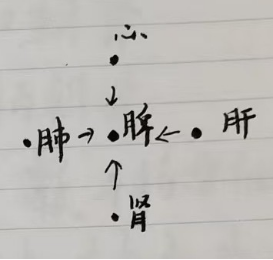 心
肺 → 脾 ← 肝
肾